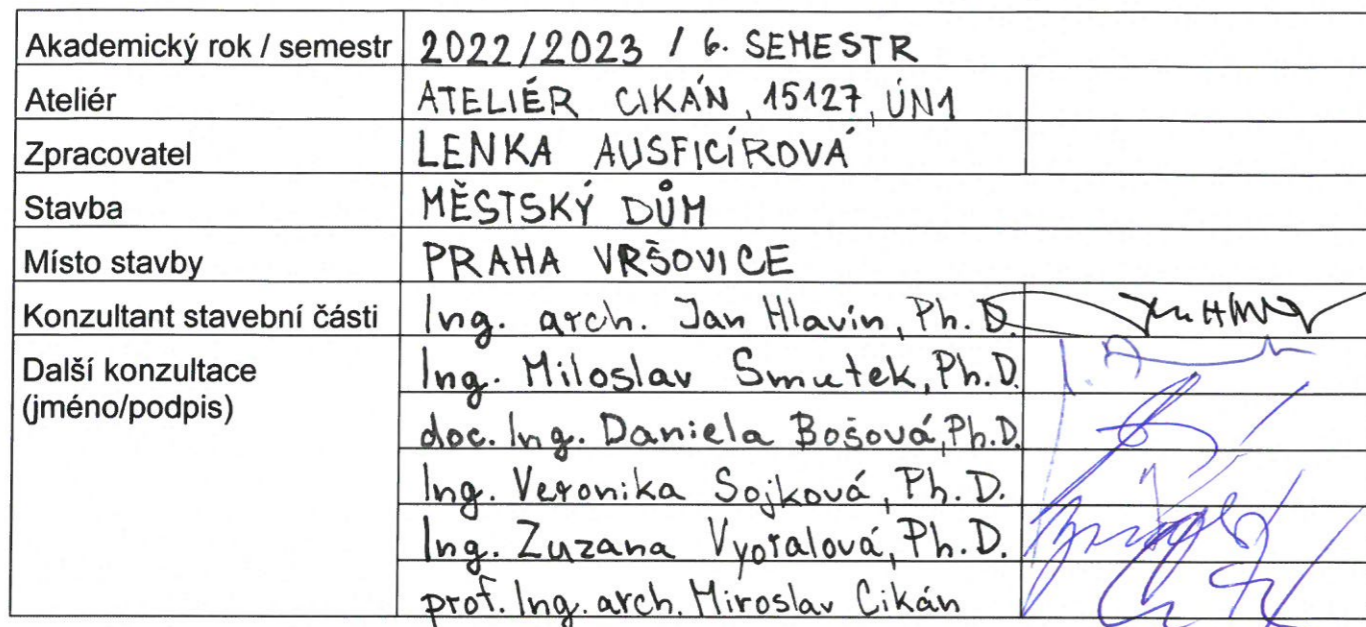 Akademický rok / semestr 2022/2023 / 6. SEMESTR
Ateliér ATELIÉR CIKÁN, 15127, ÚN1
Zpracovatel LENKA AUSFICÍROVÁ
Stavba MĚSTSKÝ DŮM
Místo stavby PRAHA VRŠOVICE
Konzultant stavební části Ing. arch. Jan Hlavín, Ph.D.
Další konzultace Ing. Miloslav Smutek, Ph.D.
(jméno/podpis) doc. Ing. Daniela Bošová, Ph.D.
Ing. Veronika Sojková, Ph.D.
Ing. Zuzana Vyoralová, Ph.D.
prof. Ing. arch. Miroslav Cikán